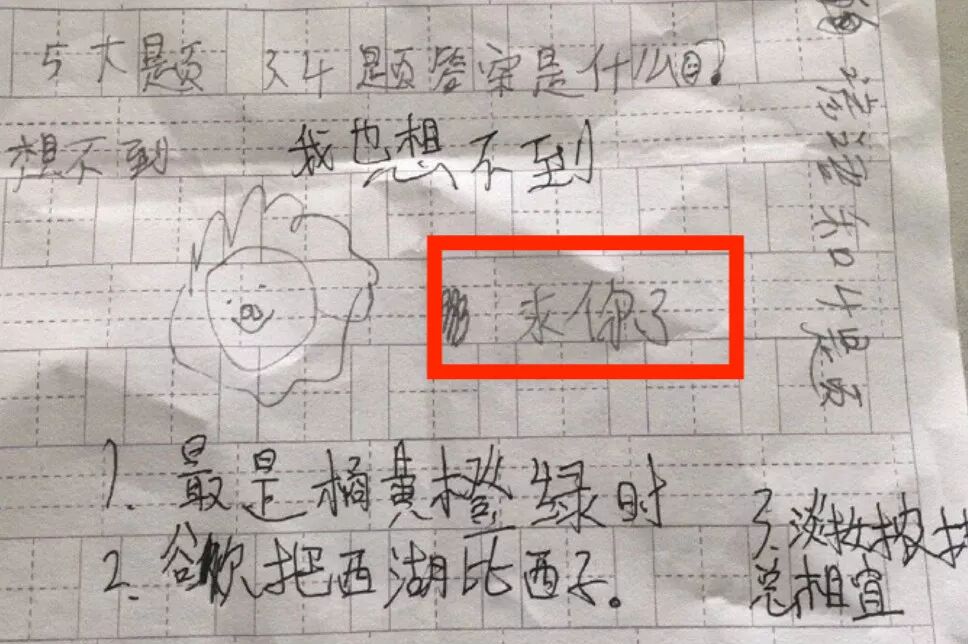 5大题 34题答案是什么?
想不到 我也想不到
求你了
1.最是橘黄橙绿时
2.欲把西湖比西子。
3.淡妆
总相宜